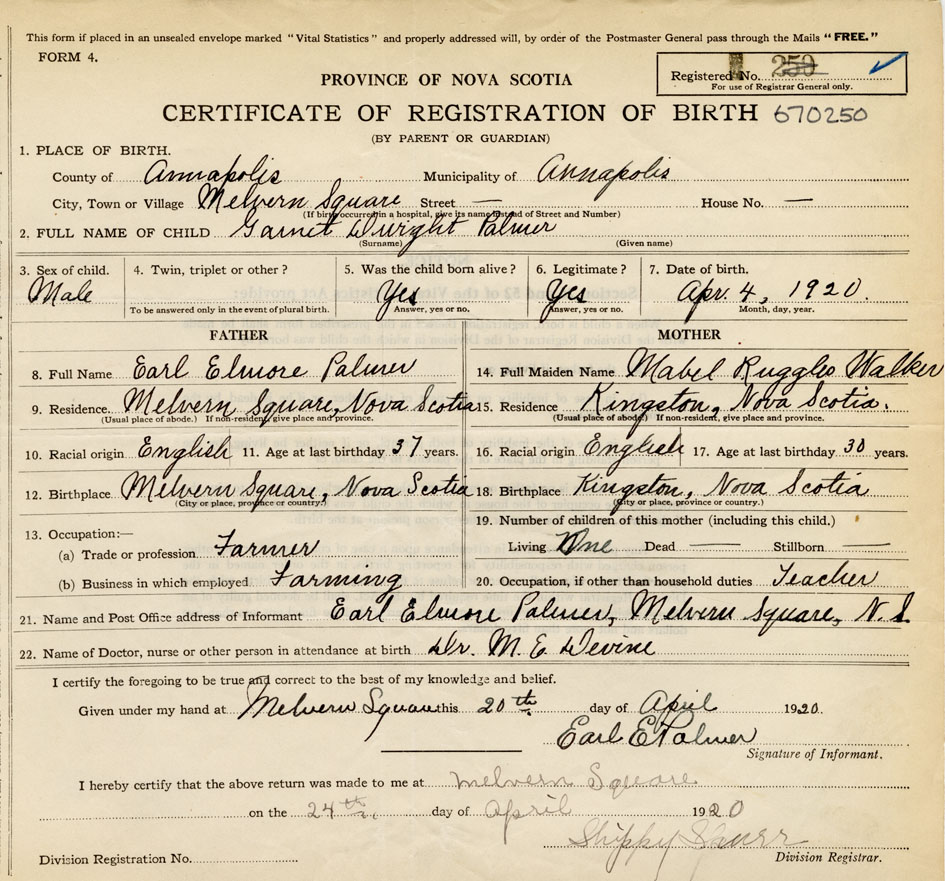 This form if placed in an unsealed envelope marked "Vital Statistics" and properly addressed will, by order of the Postmaster General pass through the Mails "FREE."
FORM 4.
Registered No. 250
For use of Registrar General only.
PROVINCE OF NOVA SCOTIA
CERTIFICATE OF REGISTRATION OF BIRTH 670250
(BY PARENT OR GUARDIAN)
1. PLACE OF BIRTH.
County of Annapolis Municipality of Annapolis
City, Town or Village Melvern Square Street — House No. —
(If birth occurred in a hospital, give its name instead of Street and Number)
2. FULL NAME OF CHILD Garnet Dwight Palmer
(Surname) (Given name)
3. Sex of child. 4. Twin, triplet or other? 5. Was the child born alive? 6. Legitimate? 7. Date of birth.
Male Yes Yes Apr. 4, 1920.
To be answered only in the event of plural birth. Answer, yes or no. Answer, yes or no. Month, day, year.
FATHER MOTHER
8. Full Name Earl Elmore Palmer 14. Full Maiden Name Mabel Ruggles Walker
9. Residence. Melvern Square, Nova Scotia 15. Residence Kingston, Nova Scotia.
(Usual place of abode.) If non-resident, give place and province. (Usual place of abode) If non-resident, give place and province.
10. Racial origin English 11. Age at last birthday 37 years. 16. Racial origin English 17. Age at last birthday 30 years.
12. Birthplace Melvern Square, Nova Scotia 18. Birthplace Kingston, Nova Scotia
(City or place, province or country.) (City or place, province or country.)
13. Occupation:— 19. Number of children of this mother (including this child.)
(a) Trade or profession Farmer Living One Dead — Stillborn —
(b) Business in which employed Farming 20. Occupation, if other than household duties Teacher
21. Name and Post Office address of Informant Earl Elmore Palmer, Melvern Square, N.S.
22. Name of Doctor, nurse or other person in attendance at birth Dr. M. E. Devine
I certify the foregoing to be true and correct to the best of my knowledge and belief.
Given under my hand at Melvern Square this 20th day of April 1920.
Earl E Palmer
Signature of Informant.
I hereby certify that the above return was made to me at Melvern Square
on the 24th day of April 1920
Shippy Spurr
Division Registration No. Division Registrar.